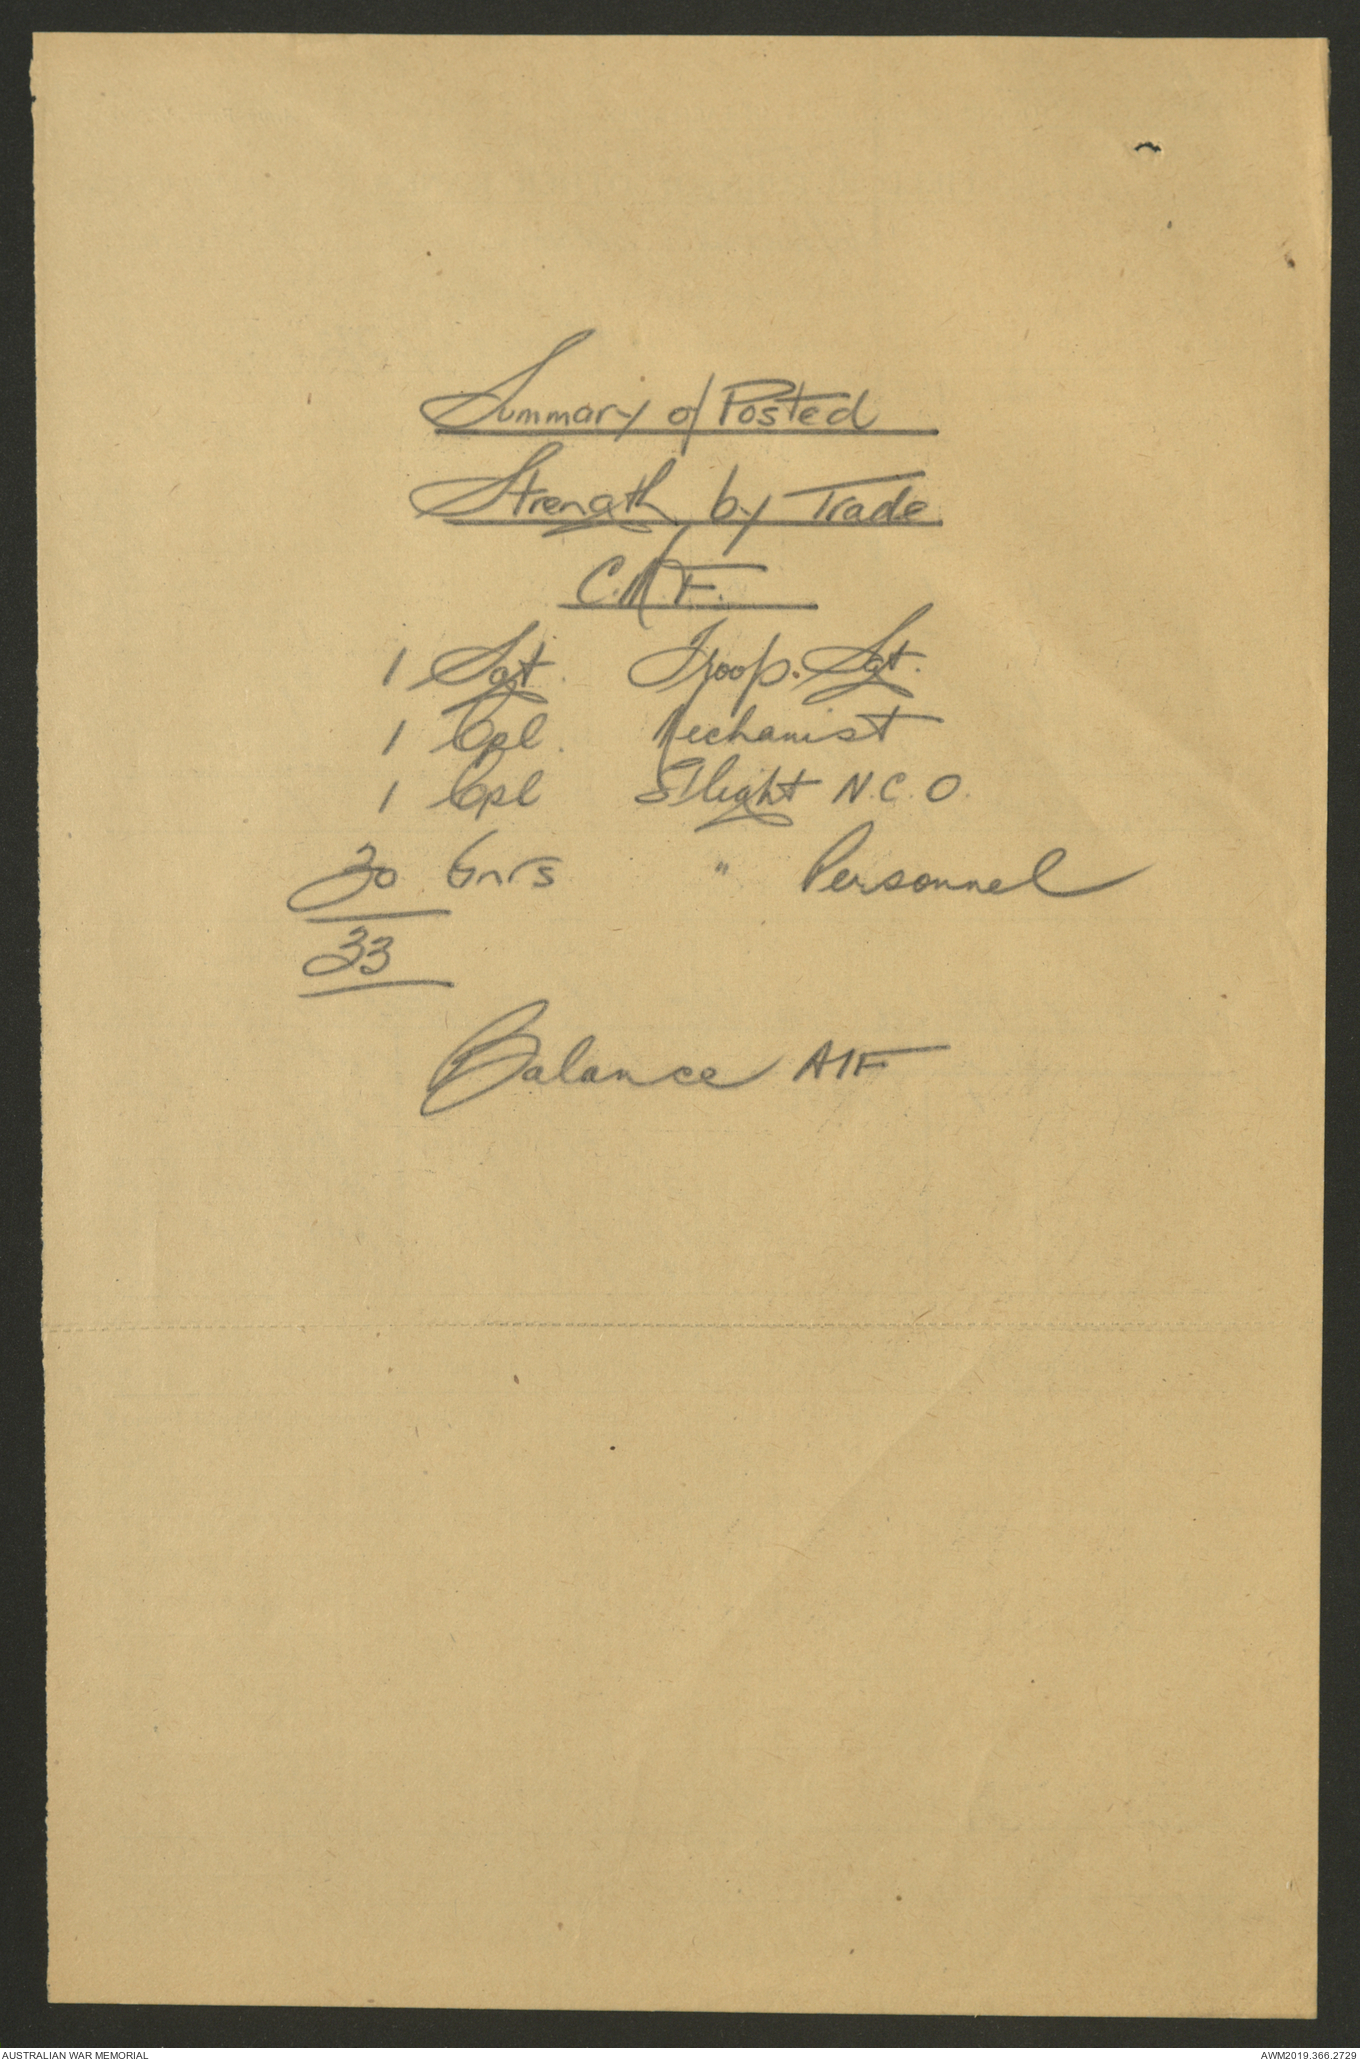 Summary of Posted
Strength by Trade
C.M.F.
1 Sgt. Troop. Sgt.
1 Cpl. Mechanist
1 Cpl S'light N.C.O.
30 Gnrs " Personnel
33
Balance AIF
AUSTRALIAN WAR MEMORIAL
AWM2019.366.2729